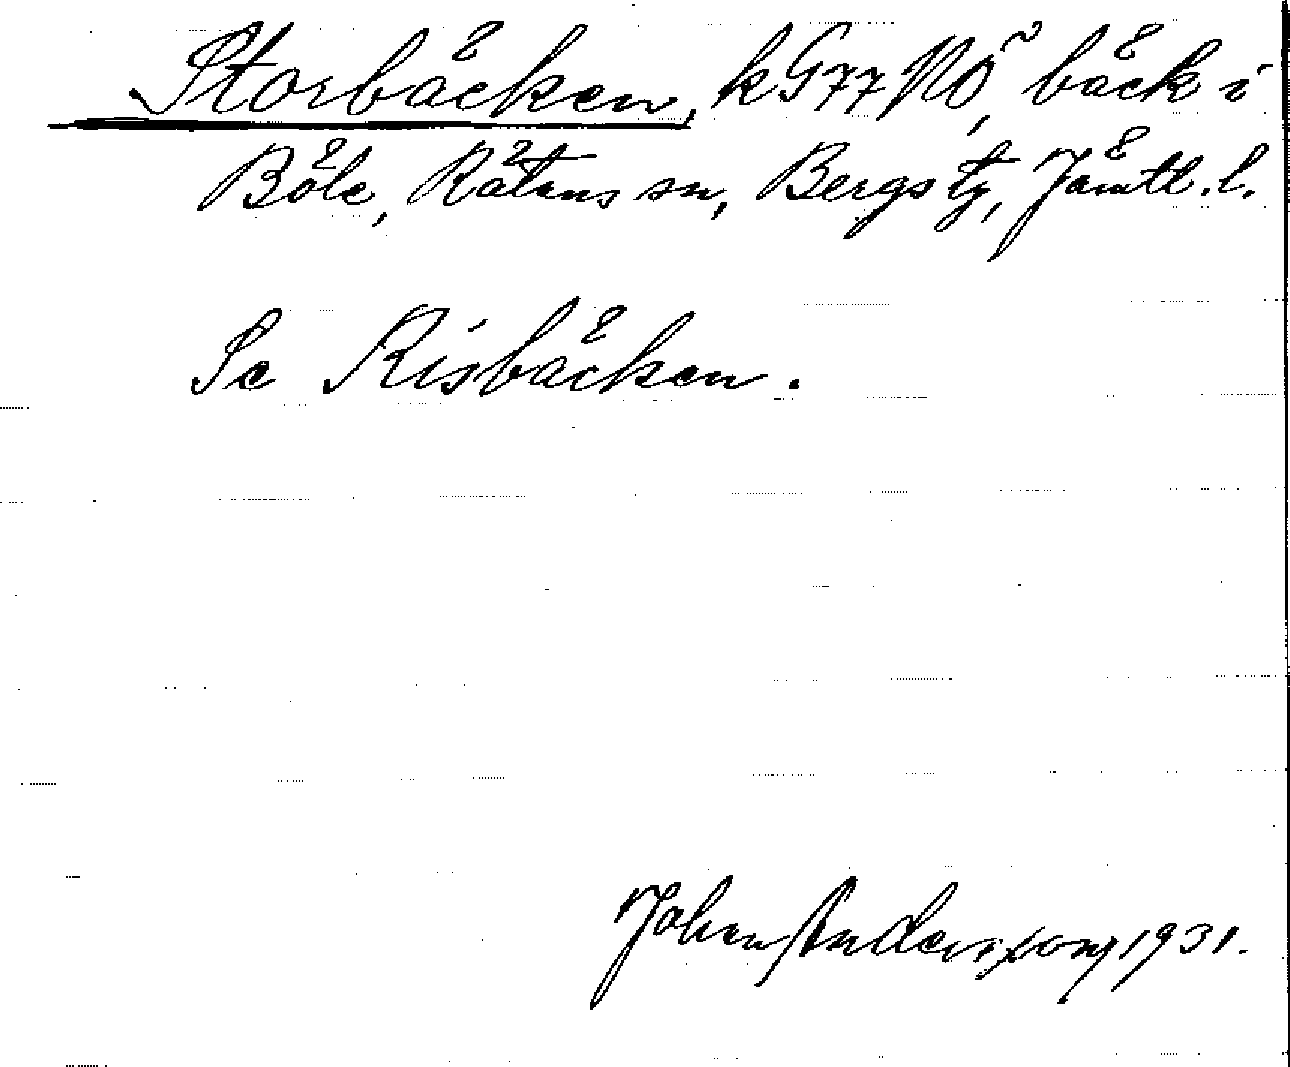 Storbäcken, kG77NÖ, bäck i
Böle, Rätans sn, Bergs tg, Jämtl.l.
Se Risbäcken.
Johan Andersson, 1931.